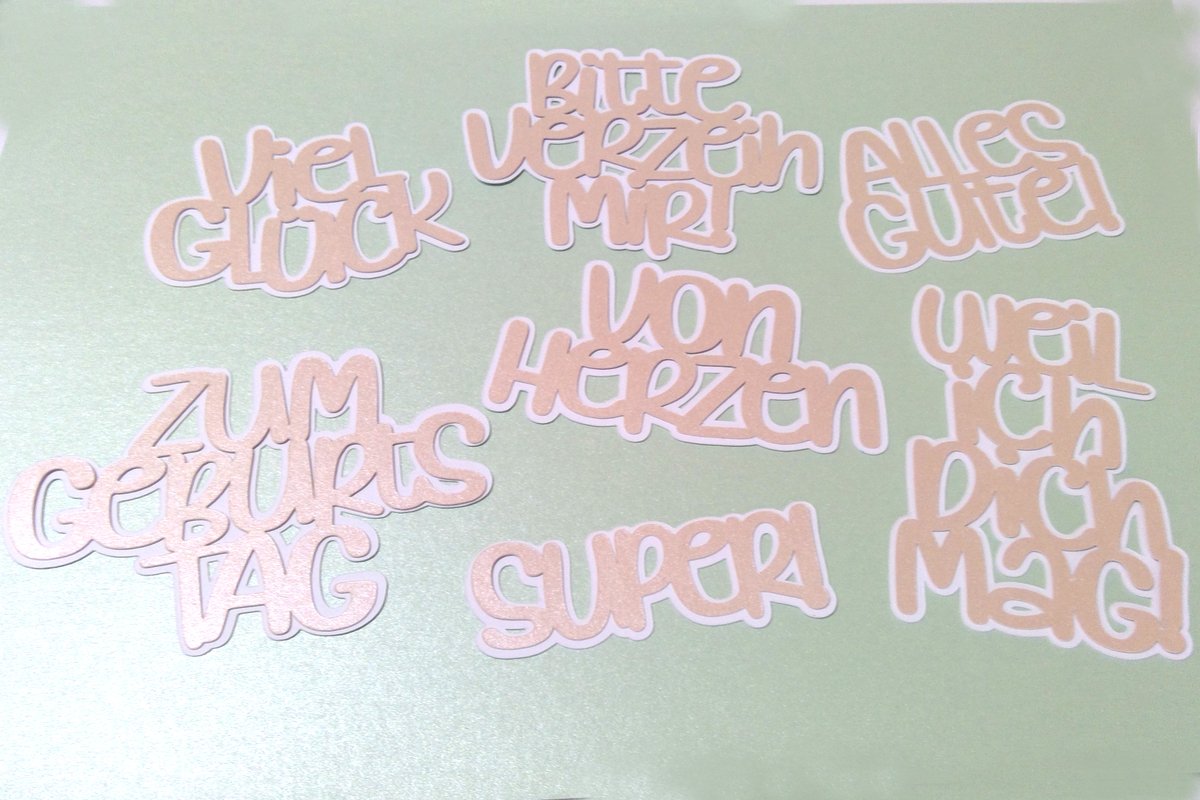 Viel
GLÜCK
Bitte
VERZEIH
MIR!
ALLES
GUTE!
ZUM
GEBURTS
TAG
VON
HERZEN
WEIL
ICH
DICH
MAG!
SUPER!